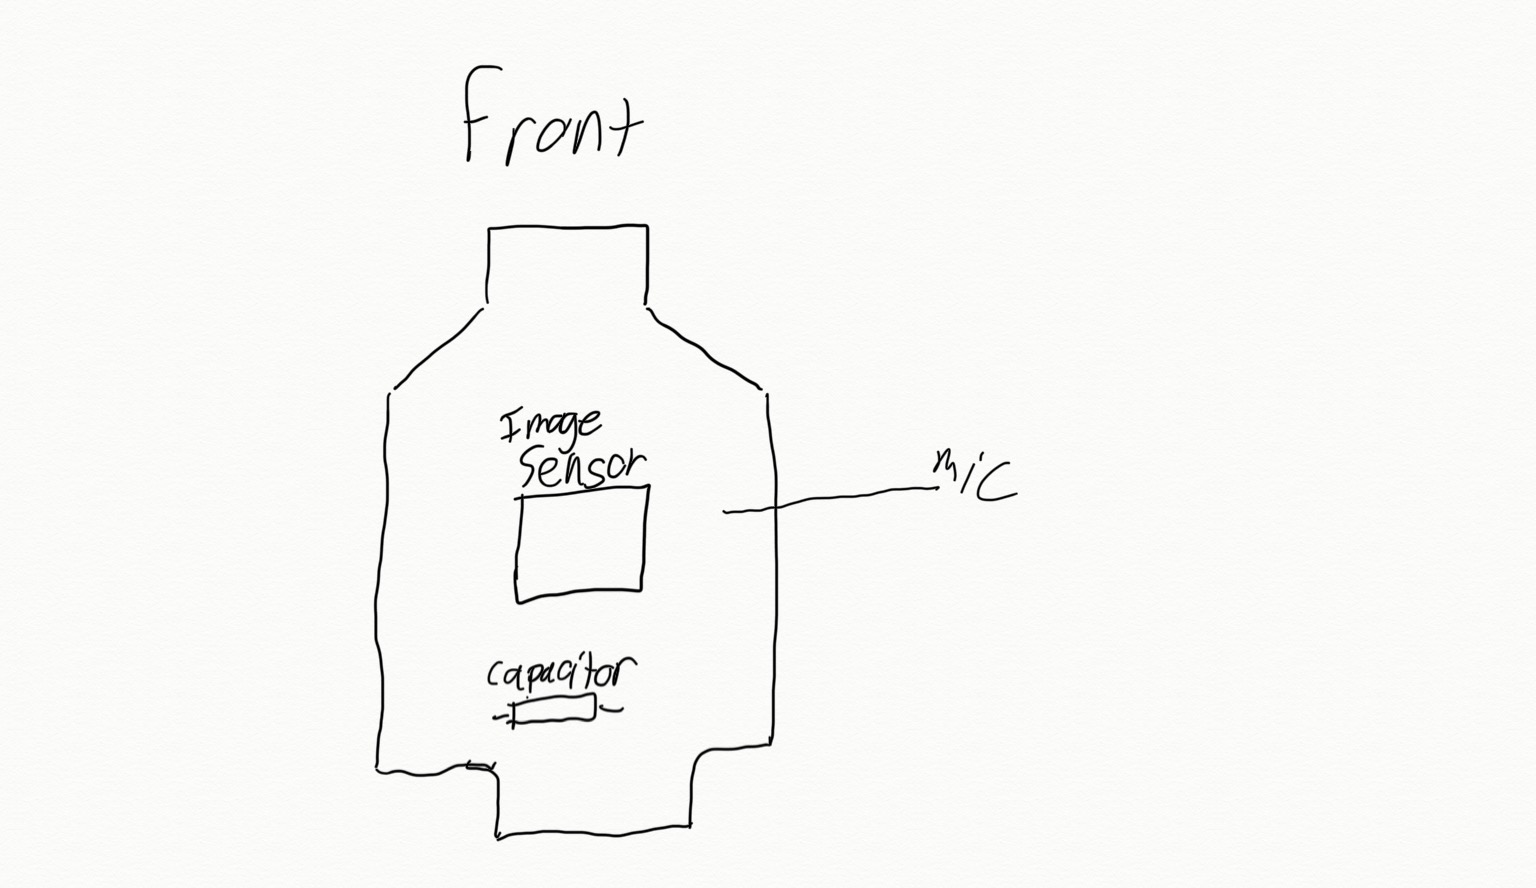 Front
Image
Sensor
mic
capacitor